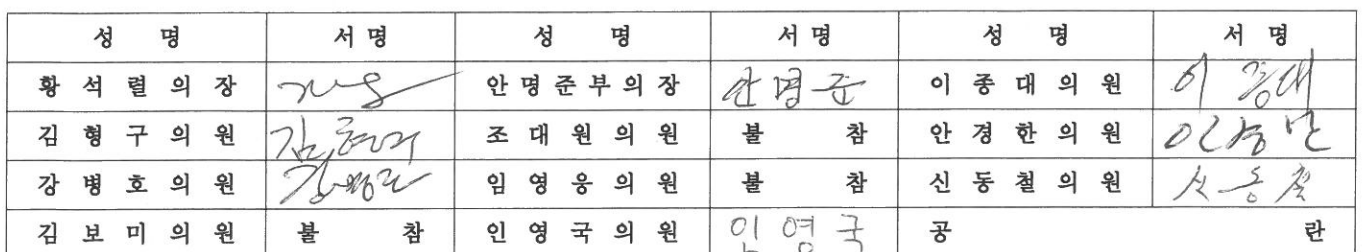 성 명 서 명 성 명 서 명 성 명 서 명
황 석 렬 의 장 안 명 준 부 의 장 안명준 이 종 대 의 원 이종대
김 형 구 의 원 김형구 조 대 원 의 원 불 참 안 경 한 의 원
강 병 호 의 원 임 영 웅 의 원 불 참 신 동 철 의 원 신동철
김 보 미 의 원 불 참 인 영 국 의 원 인영국 공 란